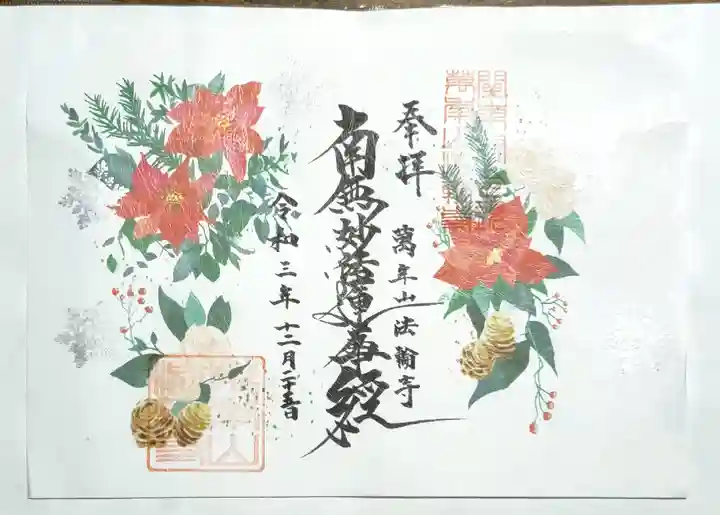 奉拝
萬年山法輪寺
南無妙法蓮華経
令和三年十二月二十五日